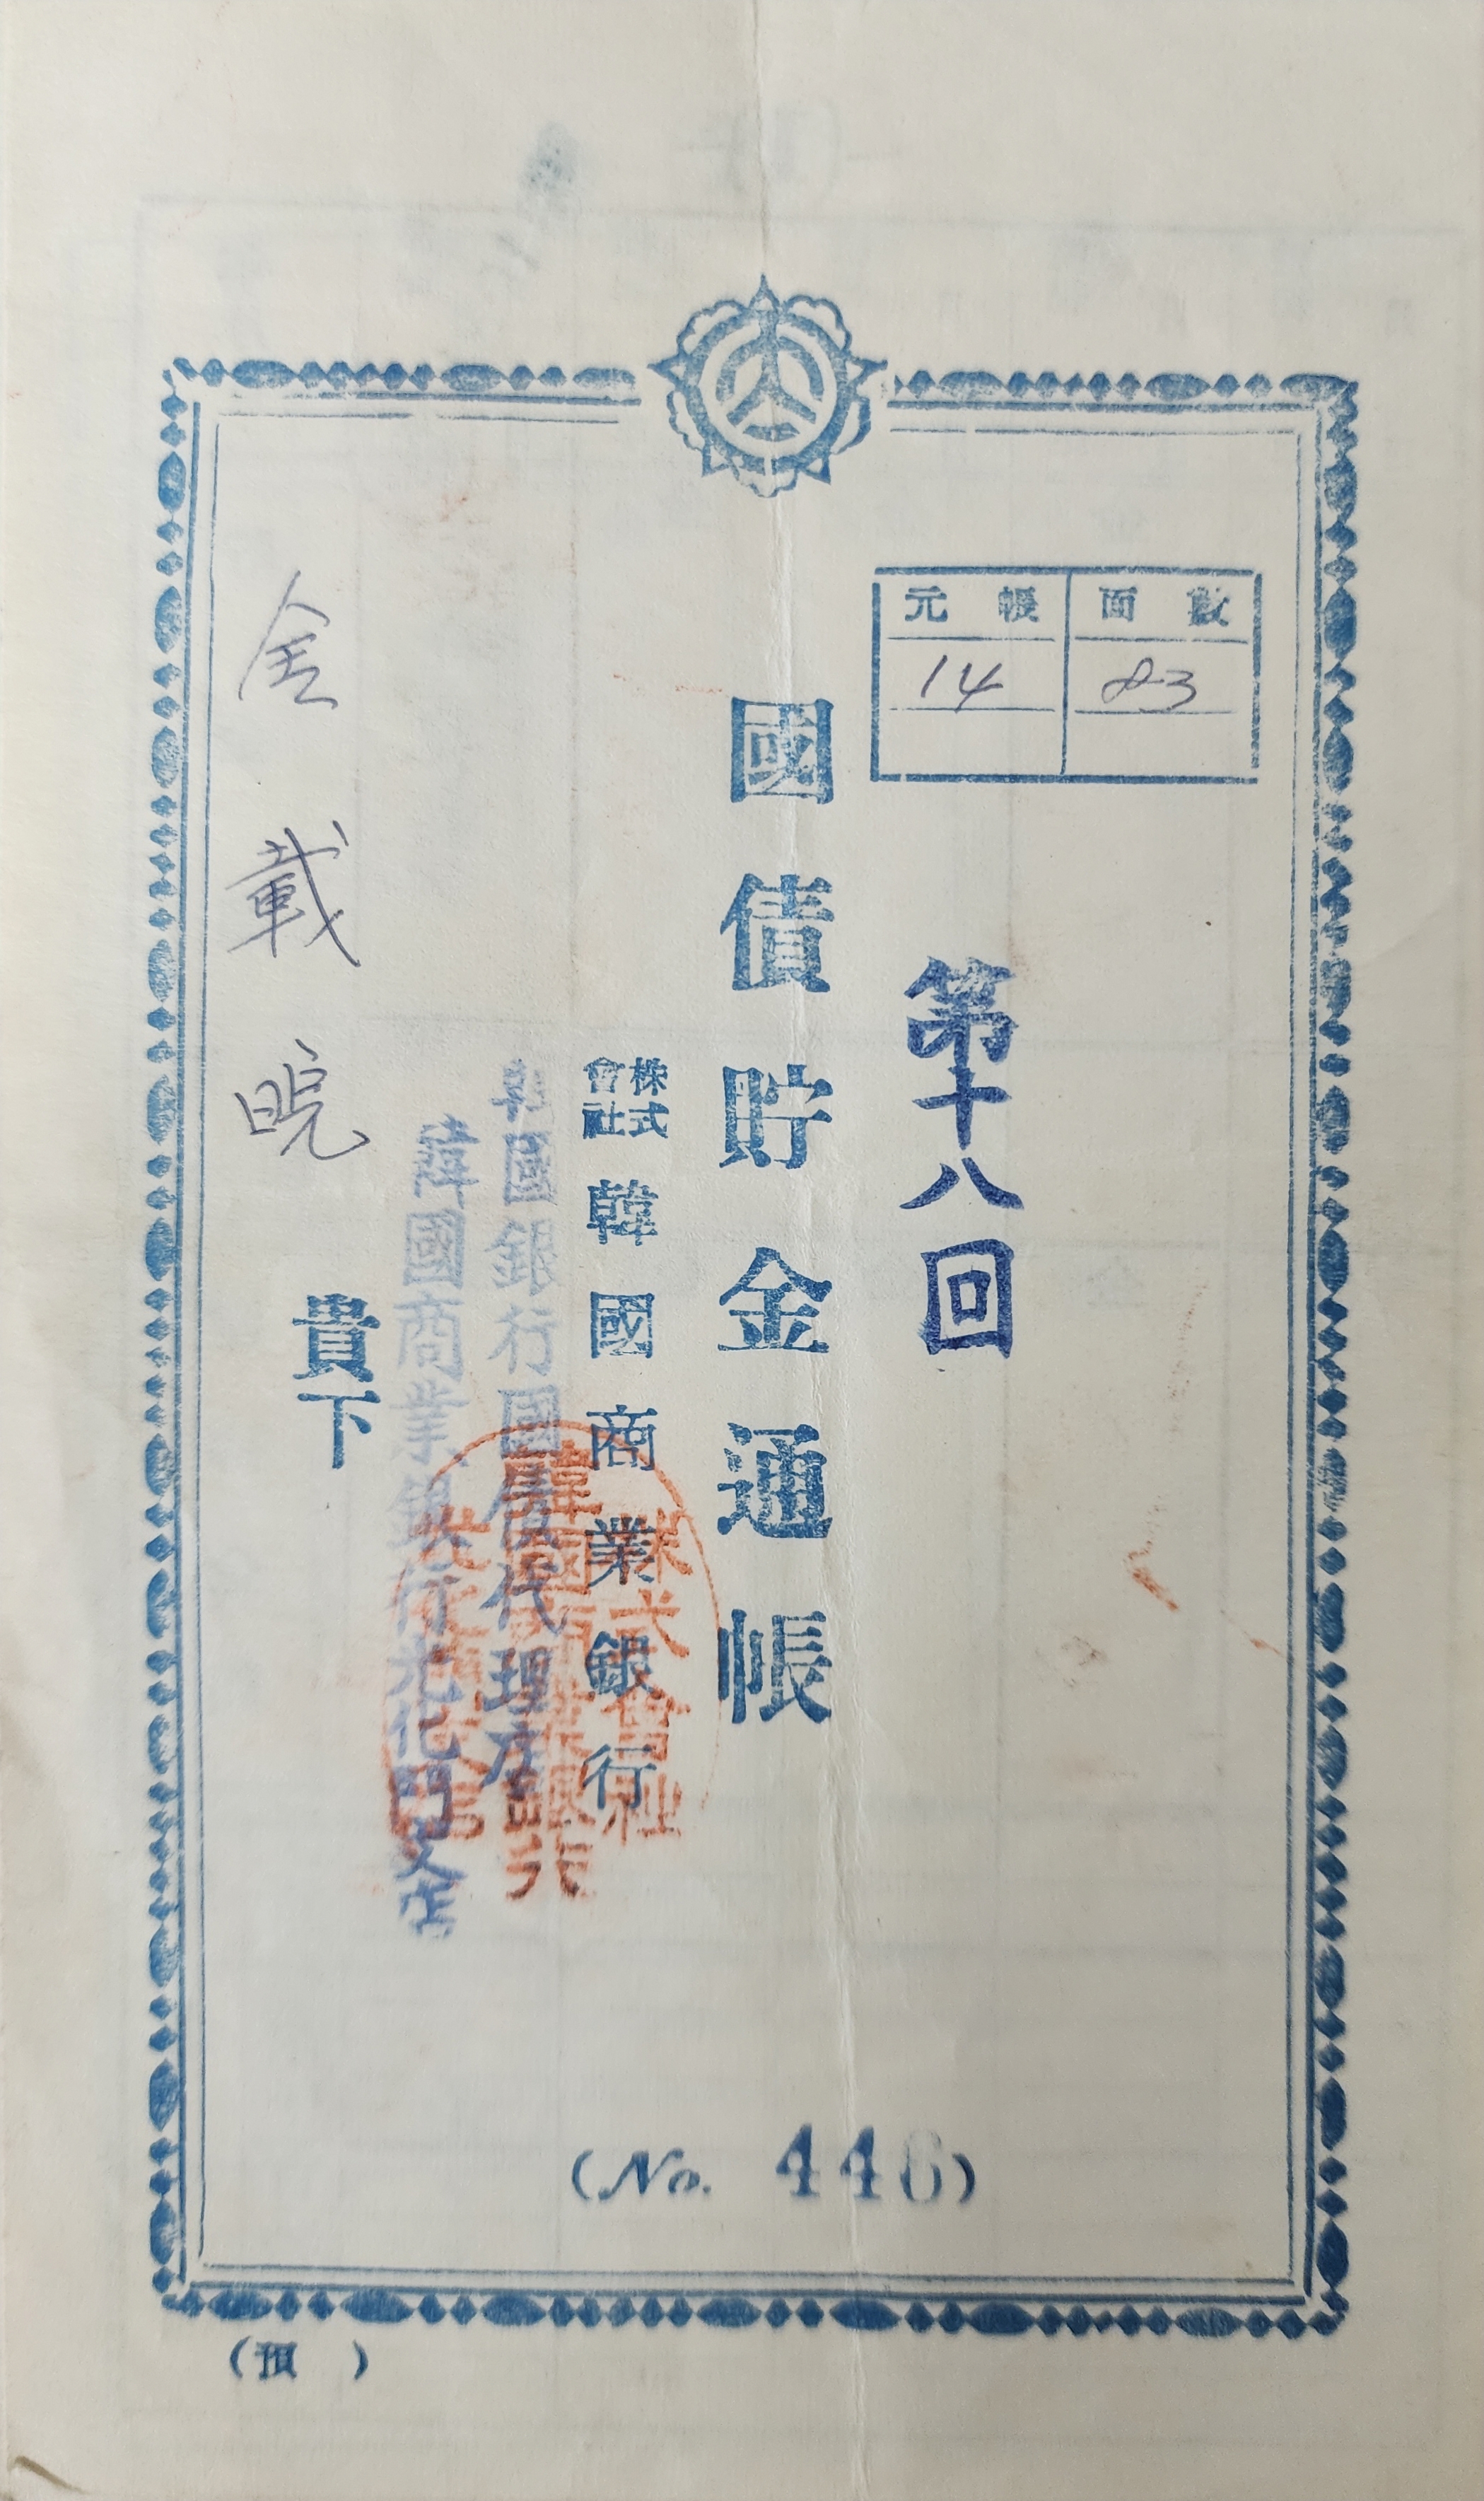 元帳 面數
14 83
第十八回
國債貯金通帳
株式會社 韓國商業銀行
韓國銀行國債代理店
韓國商業銀行光化門支店
株式會社
韓國商業銀行
金載晥
貴下
(No. 446)
(預 )